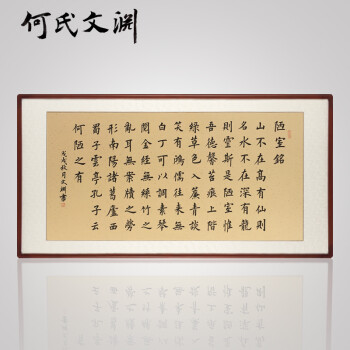 何氏文渊
陋室銘
山不在高有仙則
名水不在深有龍
則靈斯是陋室惟
吾德馨苔痕上階
綠草色入簾青談
笑有鴻儒往來無
白丁可以調素琴
閱金經無絲竹之
亂耳無案牘之勞
形南陽諸葛廬西
蜀子雲亭孔子云
何陋之有
戊戌秋月文渊書